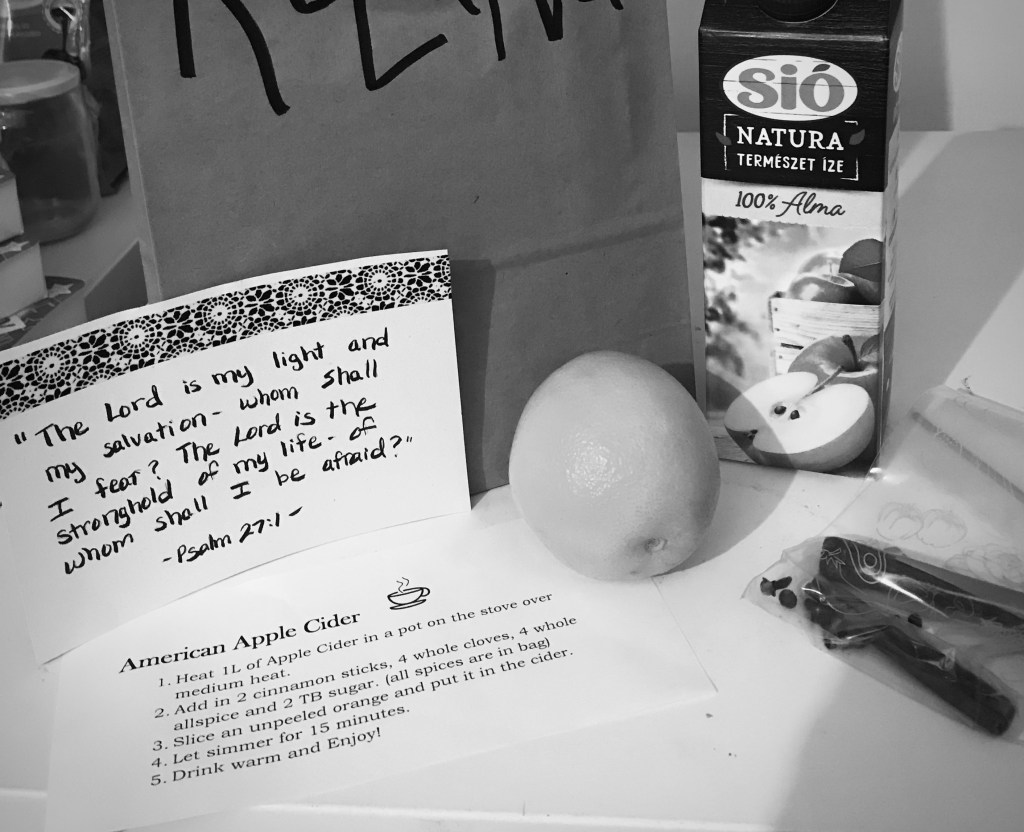 SIÓ
NATURA
TERMÉSZET ÍZE
100% Alma
"The Lord is my light and
my salvation - whom shall
I fear? The Lord is the
stronghold of my life - of
whom shall I be afraid?"
- Psalm 27:1 -
American Apple Cider
1. Heat 1L of Apple Cider in a pot on the stove over
medium heat.
2. Add in 2 cinnamon sticks, 4 whole cloves, 4 whole
allspice and 2 TB sugar. (all spices are in bag)
3. Slice an unpeeled orange and put it in the cider.
4. Let simmer for 15 minutes.
5. Drink warm and Enjoy!